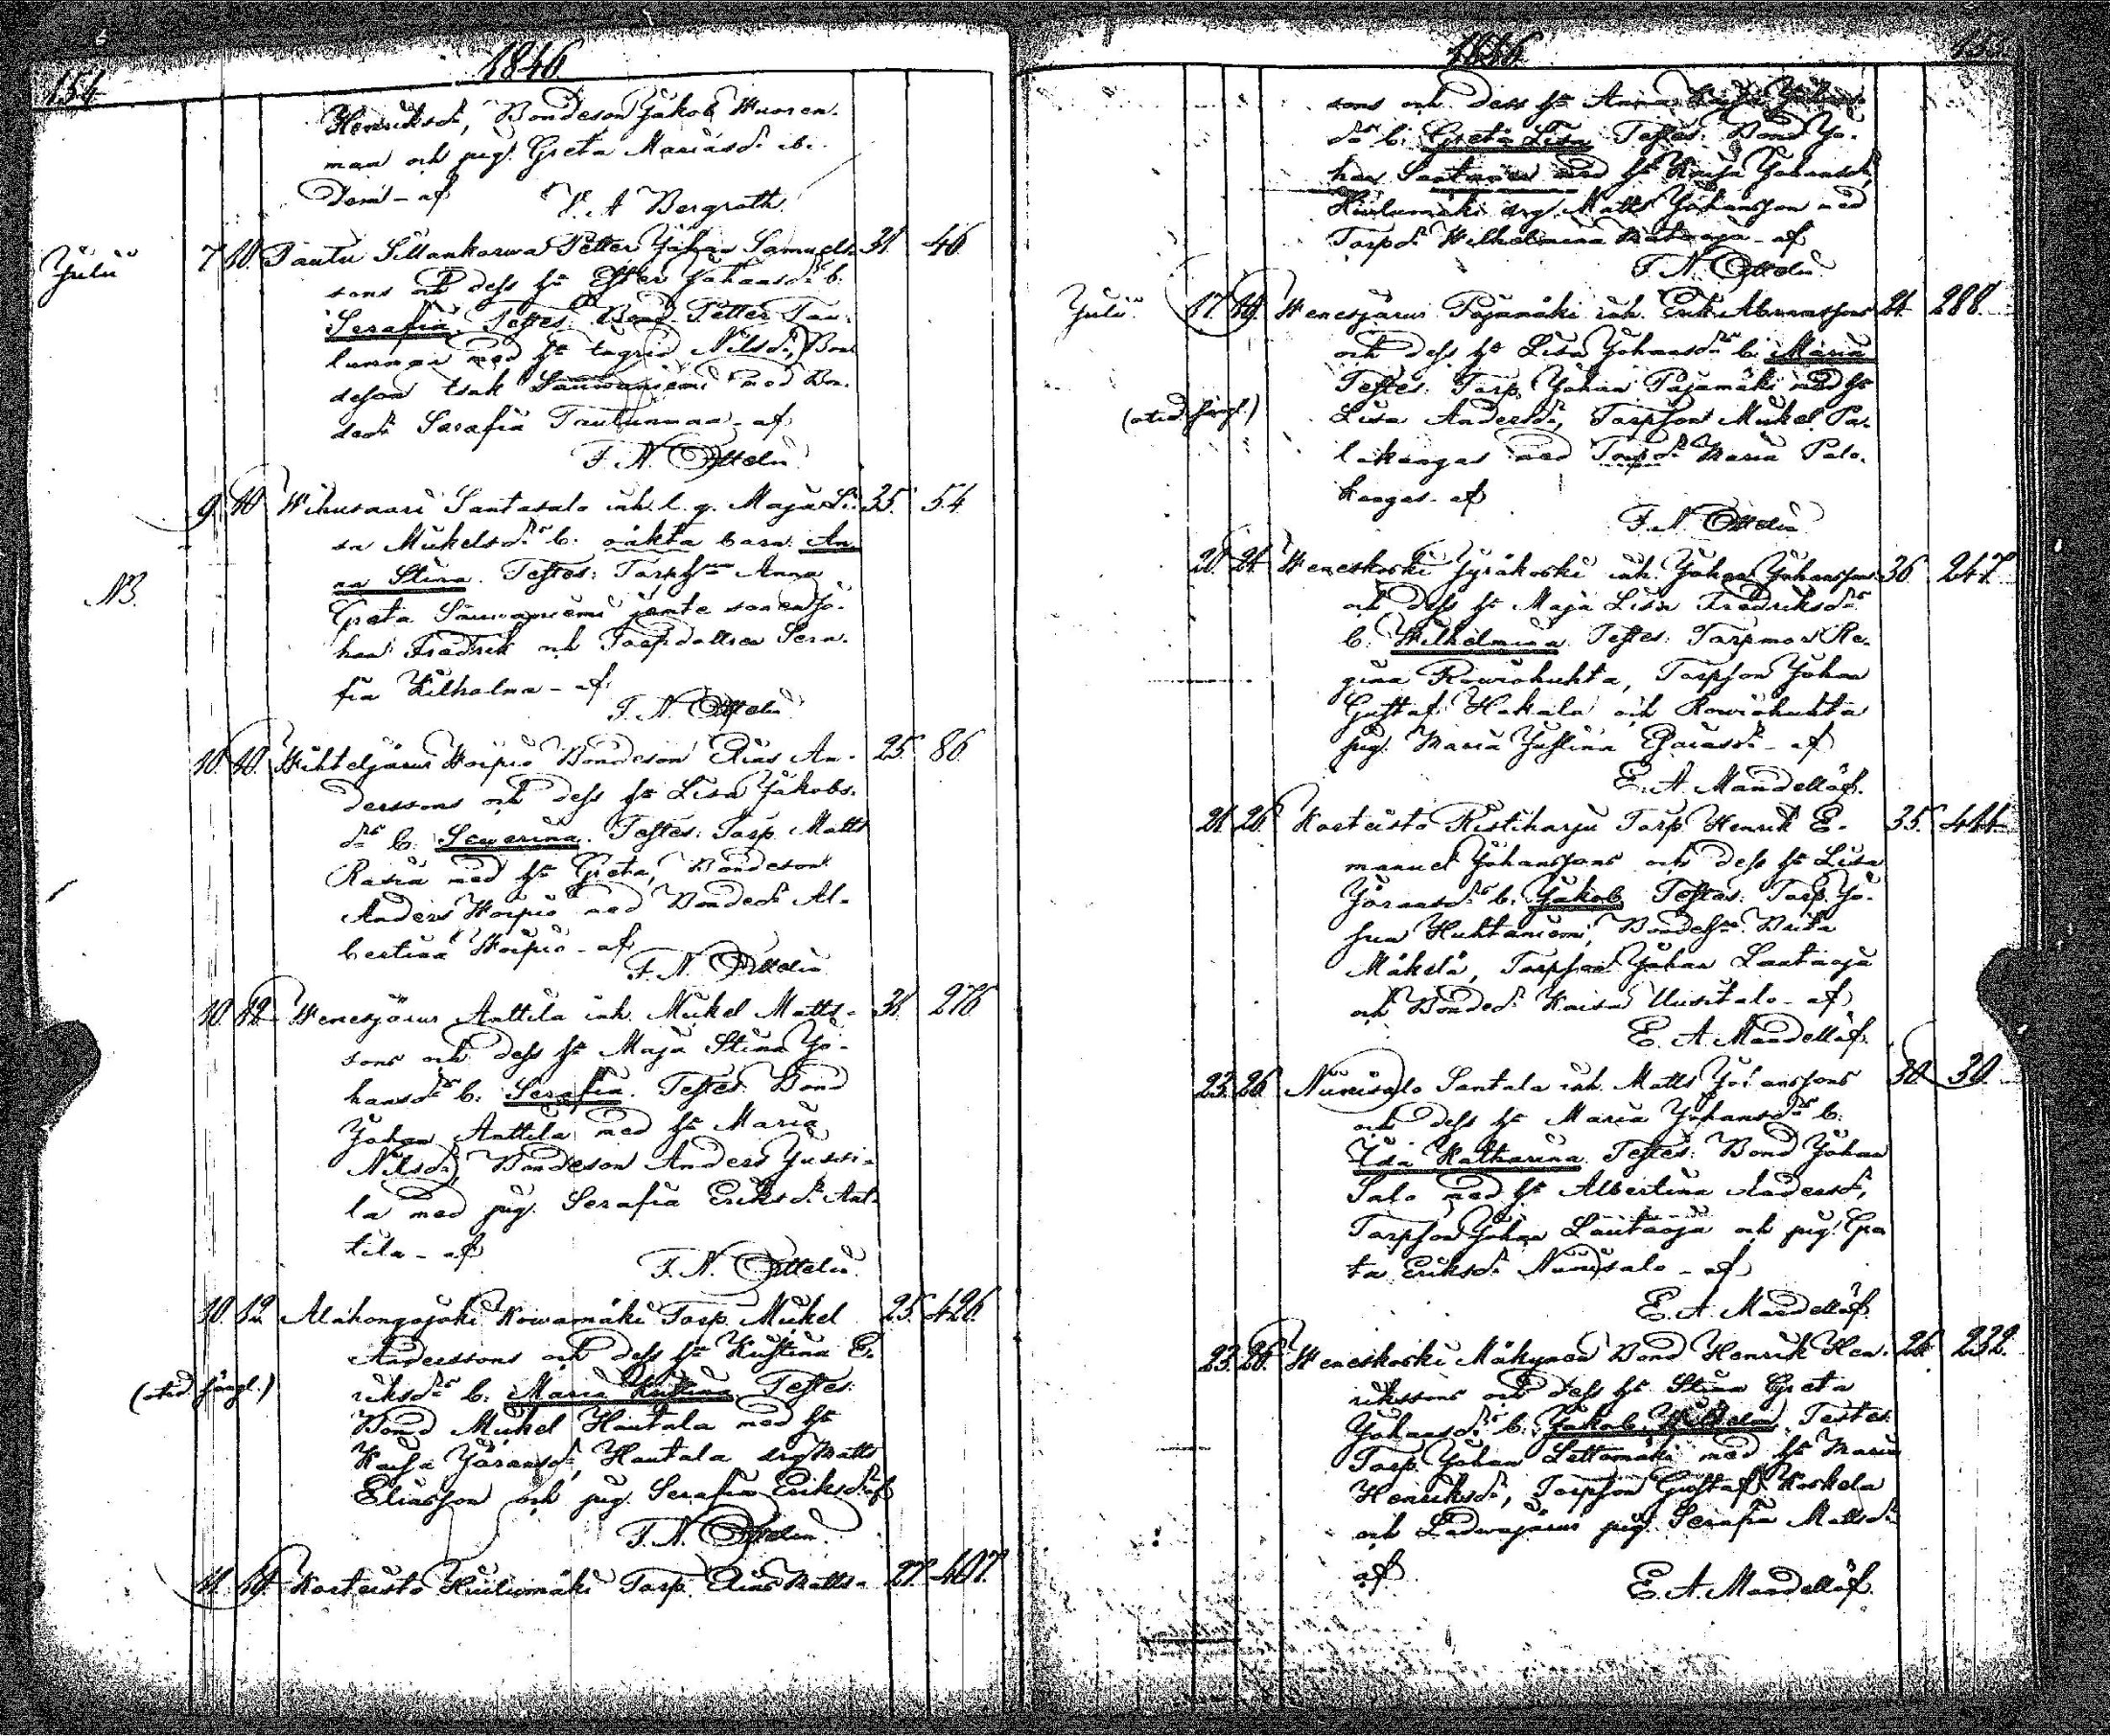 154
1846
Henriksdr, Bondeson Jakob Wuoren-
maa och pig. Greta Mariasdr ibi-
dem - af
E. A Bergroth.
Juli 7 10 Tautu Sillankorwa Petter Johan Samuels- 31 46
sons och dess hu Ester Johansdr b.
Serafia. Testes. Bond Petter Tau-
lumaa med hu Ingrid Nilsdr, Bon-
deson Isak Sauwaniemi med Bon-
dedr Serafia Tautunmaa - af
F. N. Ottelin
9 10 Wihusaari Santasalo inh. l. q. Maja Li- 35. 54
sa Mickelsdrs b. oäkta barn An-
na Stina. Testes: Torphu Anna
NB.
Greta Sauwaniemi jemte sonen Jo-
han Fredrik och Torpdottren Sera-
fia Kilholma - af
F. N. Ottelin
10. 10. Wihteljärwi Woipio Bondeson Elias An- 25. 86
derssons och dess hu Lisa Jakobs-
drs b. Sewerina. Testes: Torp. Matts
Rasia med hu Greta, Bondeson
Anders Woipio med Bondedr Al-
bertina Woipio - af
F. N. Ottelin
10. 12. Wenesjärwi Anttila inh. Mickel Matts- 31. 276
sons och dess hu Maja Stina Jo-
hansdrs b. Serafia. Testes. Bond
Johan Anttila med hu Maria
Nilsdr, Bondeson Anders Jussi-
la med pig. Serafia Eriksdr Ant-
tila - af
F. N. Ottelin
10. 12. Alahongajoki Kowamäki Torp. Mickel 25. 426
Anderssons och dess hu Kustina E-
riksdrs b. Maria Kustina. Testes:
Bond Mickel Hautala med hu
Kaisa Jöransdr, Hautala drg Matts
Eliasson och pig. Serafia Eriksdr af
F. N. Ottelin
11. Karteisto Huilumäki Torp. Elias Matts- 27. 407.
1846
sons och dess hu Anna
drs b. Greta Lisa. Testes. Bond Jo-
han Santanen med hu Kaisa Johansdr,
Huilumäki drg Matts Johansson med
Torpdr Wilhelmina - af
F. N. Ottelin
Juli 17. 19. Wenesjärwi Pajamäki inh. Erik Abramssons 21. 288.
och dess hu Lisa Johansdrs b. Maria
Testes. Torp. Johan Pajamäki med hu
Lisa Andersdr, Torpson Mickel Pa-
lokangas med Torpdr Maria Palo-
kangas - af
F. N. Ottelin
20. 21. Weneskoski Jyräkoski inh. Johan Johanssons 36 247.
och dess hu Maja Lisa Fredriksdrs
b. Wilhelmina. Testes: Torpmor Re-
gina Rowiohuhta, Torpson Johan
Gustaf Hakala och Rowiohuhta
pig. Maria Justina Esaiasdr - af
E. A. Mandellöf.
21. 26. Karteisto Ristiharju Torp. Henrik E- 35. 411
manuel Johanssons och dess hu Lisa
Jöransdrs b. Jakob. Testes. Torp. Jo-
sua Huhtaniemi, Bondehu Brita
Mäkelä, Torpson Johan Lautaoja
och Bondedr Kaisa Uusitalo - af
E. A. Mandellöf.
23. 26 Niinisalo Santala inh. Matts Johanssons 30. 39.
och dess hu Maria Johansdrs b.
Ida Katharina. Testes: Bond Johan
Salo med hu Albertina Andersdr,
Torpson Johan Lautaoja och pig. Gre-
ta Eriksdr Niinisalo - af
E. A. Mandellöf.
23. 26. Weneskoski Mäkynen Bond Henrik Hen- 26 232.
rikssons och dess hu Stina Greta
Johansdrs b. Jakob Wilhelm. Testes:
Torp. Johan Lettomäki med hu Maria
Henriksdr, Torpson Gustaf Koskela
och Ladwajärwi pig. Serafia Mattsdr
af
E. A. Mandellöf.